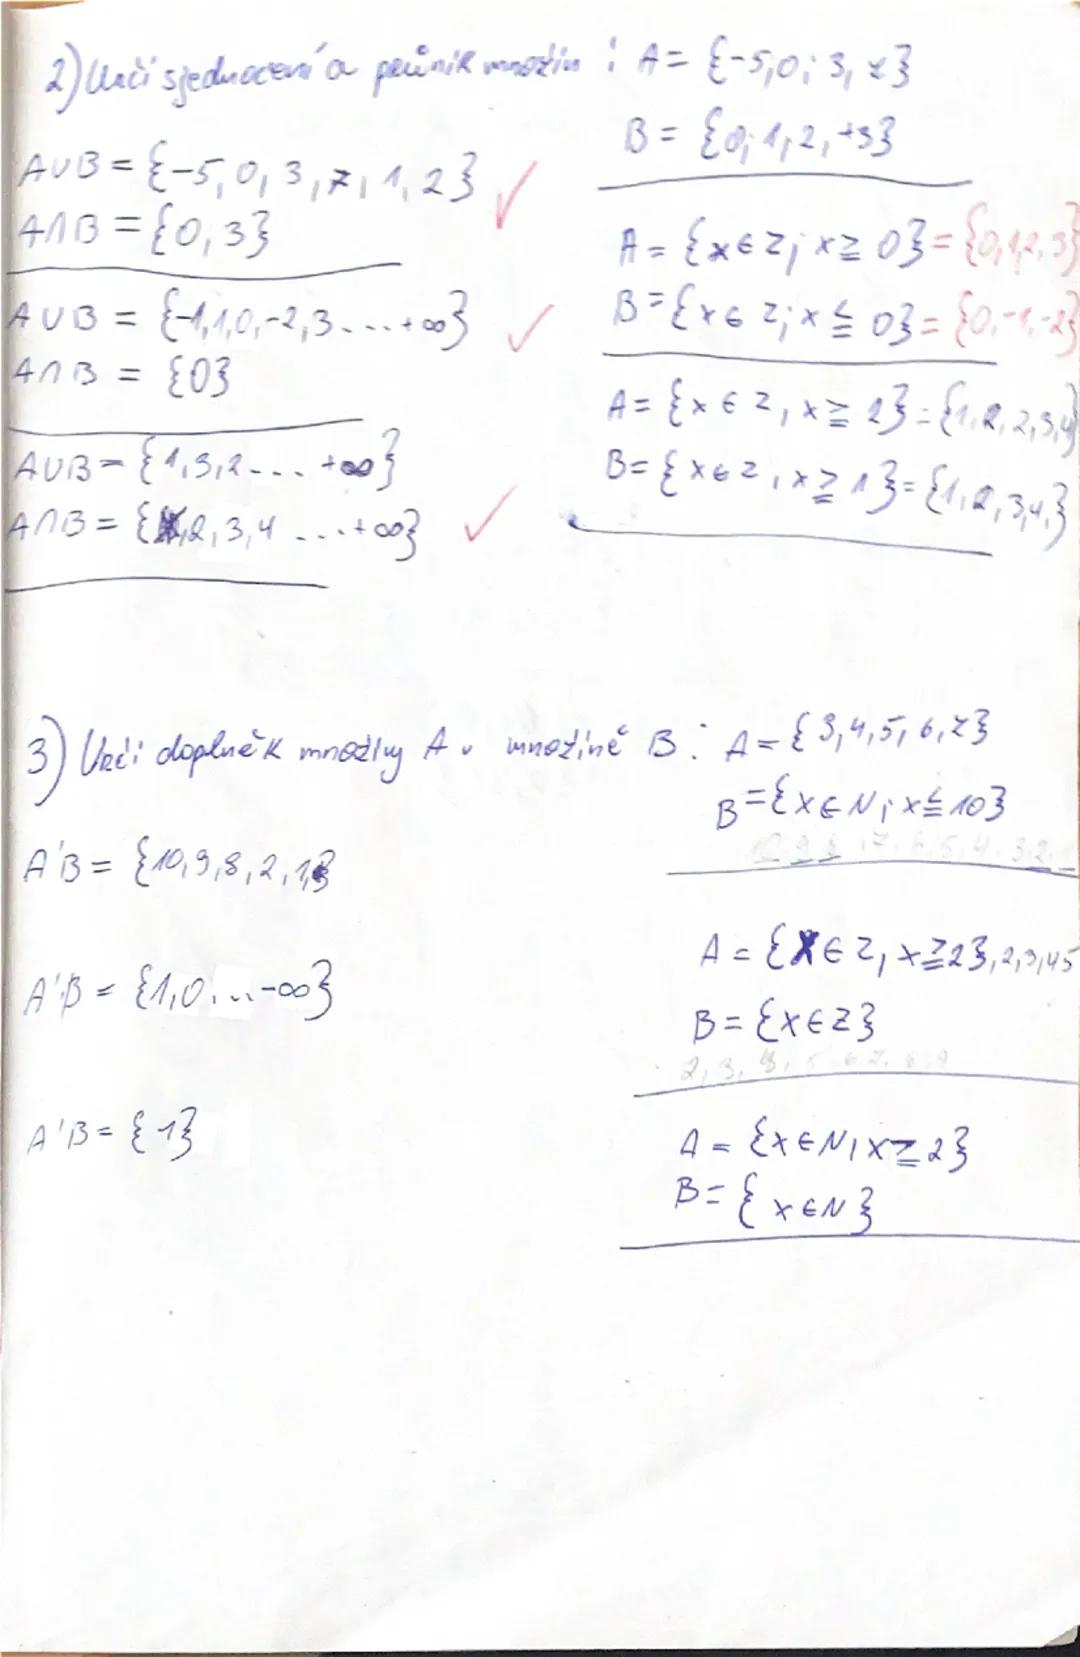 2) Urči sjednocení a průnik množin : A = {-5, 0; 3, 7}
B = {0; 1, 2, +3}
A∪B = {-5, 0, 3, 7, 1, 2} ✓
A∩B = {0, 3}
A = {x∈Z; x≧0} = {0,1,2,3}
B = {x∈Z; x≦0} = {0,-1,-2}
A∪B = {-1,1,0,-2,3....+∞} ✓
A∩B = {0}
A = {x∈Z, x≧2} = {1,2,2,3,4}
B = {x∈Z, x≧1} = {1,2,3,4,}
A∪B = {1,3,2... +∞}
A∩B = {2,3,4 ...+∞} ✓
3) Urči doplněk množiny A v množině B : A = {3,4,5,6,7}
B = {x∈N; x≦10}
10 9 8 , 7, 6, 5, 4, 3 2, 1
A'B = {10,9,8,2,1}
A = {x∈Z, x≧2}, 2,3,45
B = {x∈Z}
A'B = {1,0...-∞}
2, 3, 4, 5 6 7, 8, 9
A = {x∈N, x≧2}
B = {x∈N}
A'B = {1}